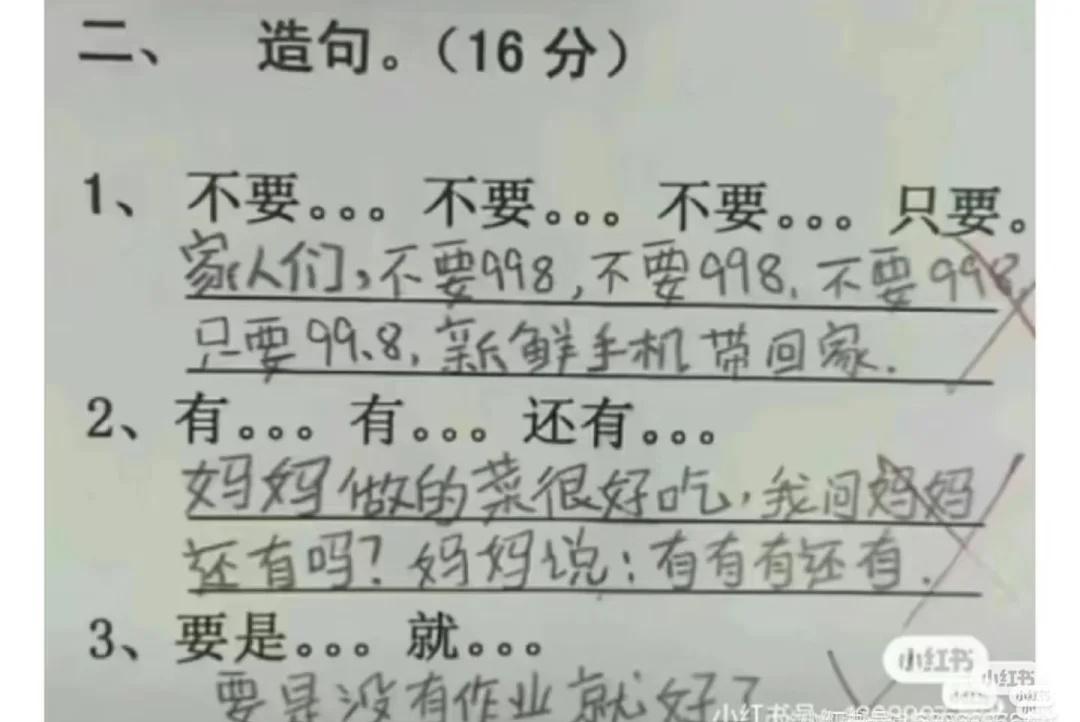 二、 造句。(16 分)
1、 不要。。。 不要。。。 不要。。。 只要。
家人们,不要998,不要998.不要998
只要99.8,新鲜手机带回家.
2、有。。。有。。。还有。。。
妈妈做的菜很好吃,我问妈妈
还有吗?妈妈说:有有有还有.
3、要是。。。就。。。
要是没有作业就好了
小红书
小红书
小红书
小红书号